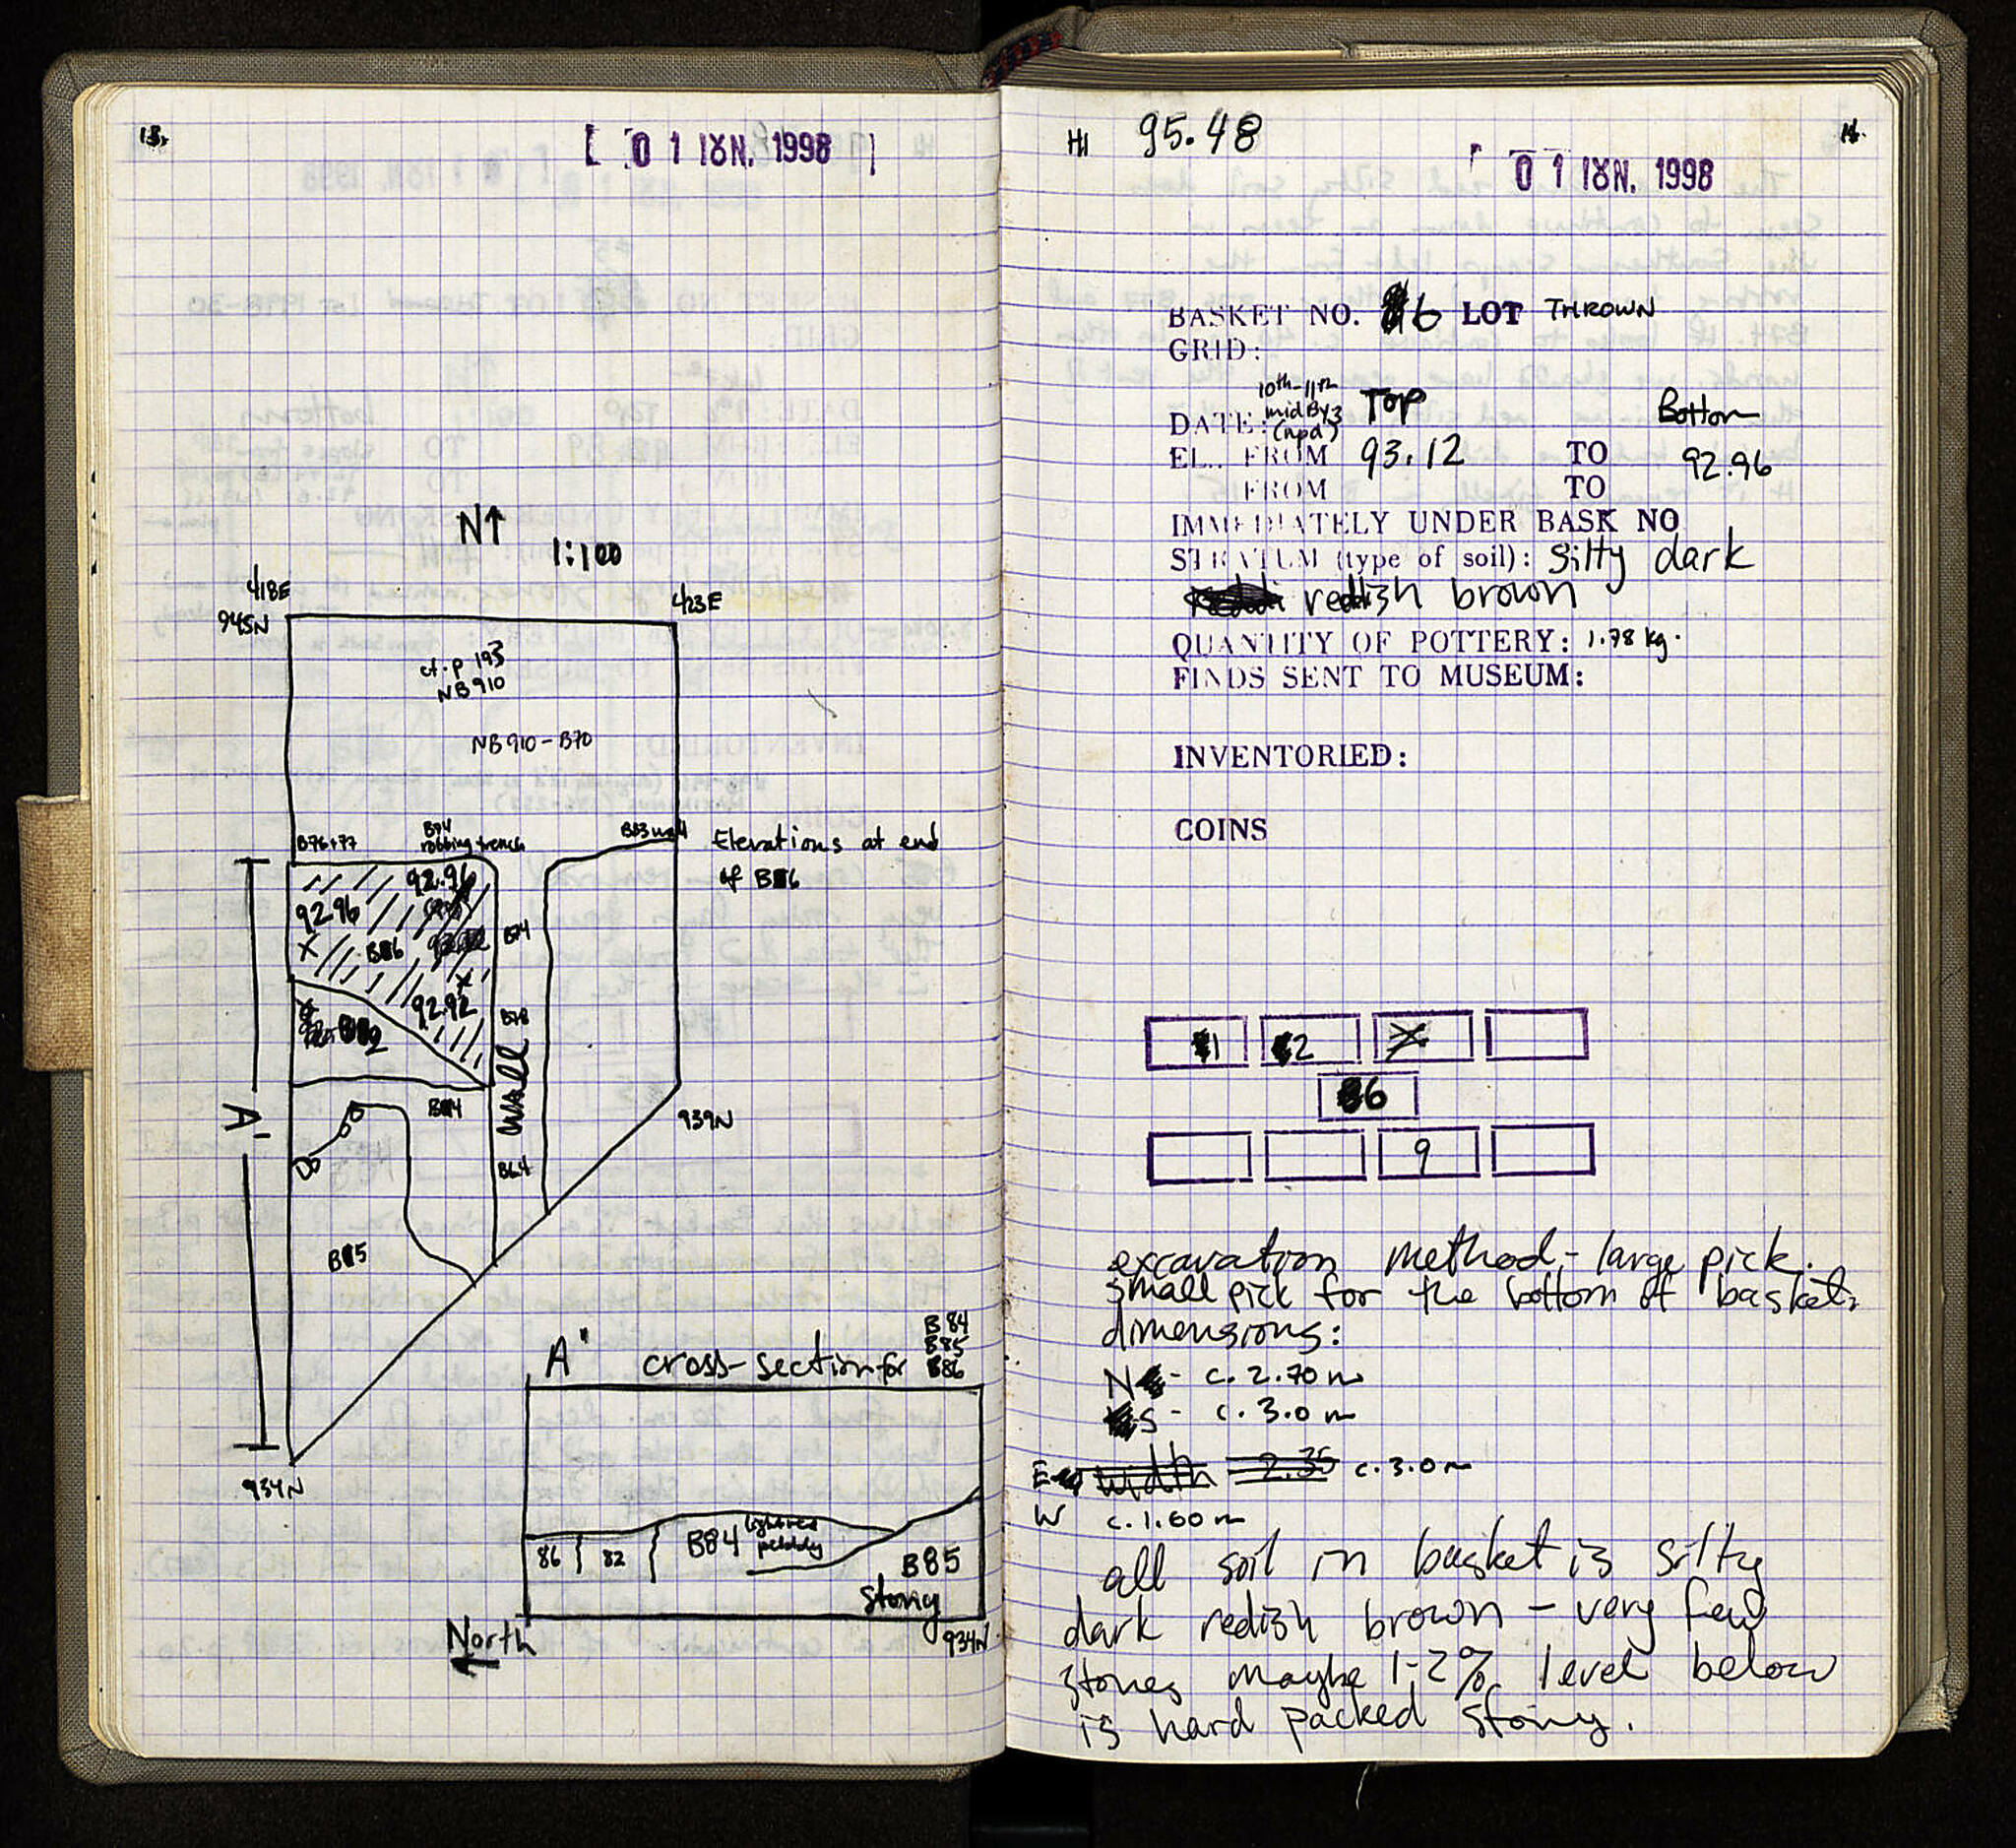 13.
[ 0 1 ΙΟΥΝ. 1998 ]
N↑
1:100
418E
423E
945N
cf. p 193
NB910
NB910-B70
B76+77
B74
robbing trench
B83 wall
Elevations at end
of B86
92.96
92.96
X
B86
B74
X
92.92
B78
wall
B84
939N
A'
B64
B85
934N
A" cross-section for B84
B85
B86
86
82
B84 light red
pebbly
B85
Stony
North
934N
H1 95.48
14.
0 1 ΙΟΥΝ. 1998
BASKET NO. 6 LOT THROWN
GRID:
10th-11th
DATE: mid Byz Top Bottom
(npd)
EL. FROM 93.12 TO 92.96
FROM TO
IMMEDIATELY UNDER BASK NO
STRATUM (type of soil): Silty dark
redish brown
QUANTITY OF POTTERY: 1.78 kg.
FINDS SENT TO MUSEUM:
INVENTORIED:
COINS
1 2
86
9
excavation method - large pick.
small pick for the bottom of basket.
dimensions:
N - c. 2.70 m
S - c. 3.0 m
E width 2.35 c. 3.0 m
W c. 1.60 m
all soil in basket is silty
dark redish brown - very few
stones maybe 1-2% level below
is hard packed stony.